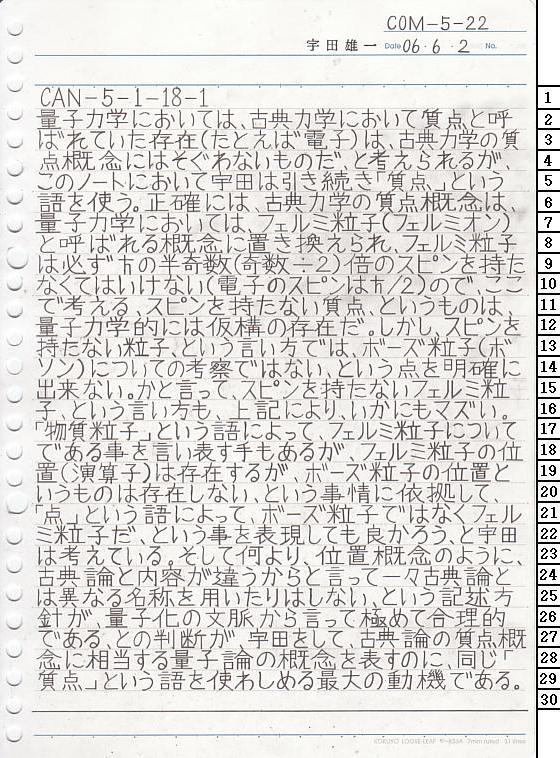 COM-5-22
宇田雄一 Date 06・6・2 No.
CAN-5-1-18-1
量子力学においては、古典力学において質点と呼
ばれていた存在(たとえば電子)は、古典力学の質
点概念にはそぐわないものだ、と考えられるが、
このノートにおいて宇田は引き続き「質点」という
語を使う。正確には、古典力学の質点概念は、
量子力学においては、フェルミ粒子(フェルミオン)
と呼ばれる概念に置き換えられ、フェルミ粒子
は必ずħの半奇数(奇数÷2)倍のスピンを持た
なくてはいけない(電子のスピンはħ/2)ので、ここ
で考える、スピンを持たない質点、というものは、
量子力学的には仮構の存在だ。しかし、スピンを
持たない粒子、という言い方では、ボーズ粒子(ボ
ソン)についての考察ではない、という点を明確に
出来ない。かと言って、スピンを持たないフェルミ粒
子、という言い方も、上記により、いかにもマズい。
「物質粒子」という語によって、フェルミ粒子について
である事を言い表す手もあるが、フェルミ粒子の位
置(演算子)は存在するが、ボーズ粒子の位置と
いうものは存在しない、という事情に依拠して、
「点」という語によって、ボーズ粒子ではなくフェル
ミ粒子だ、という事を表現しても良かろう、と宇田
は考えている。そして何より、位置概念のように、
古典論と内容が違うからと言って一々古典論と
は異なる名称を用いたりはしない、という記述方
針が、量子化の文脈から言って極めて合理的
である、との判断が、宇田をして、古典論の質点概
念に相当する量子論の概念を表すのに、同じ「
質点」という語を使わしめる最大の動機である。
1
2
3
4
5
6
7
8
9
10
11
12
13
14
15
16
17
18
19
20
21
22
23
24
25
26
27
28
29
30
KOKUYO LOOSE-LEAF ノ-836A 7mm ruled 31 lines